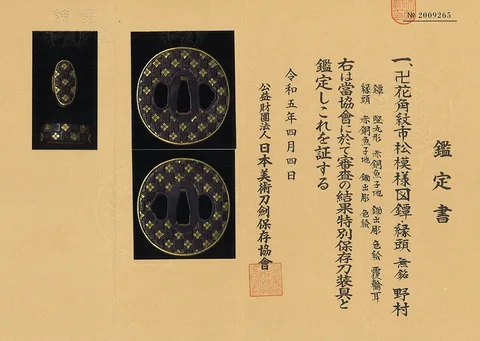 № 2009265
鑑定書
一、卍花角紋市松模様図鐔・縁頭 無銘 野村
鐔 竪丸形 赤銅魚子地 鋤出彫 色絵 覆輪耳
縁頭 赤銅魚子地 鋤出彫 色絵
右は當協會に於て審査の結果特別保存刀装具と
鑑定しこれを証する
令和五年四月四日
公益財團法人日本美術刀劍保存協會